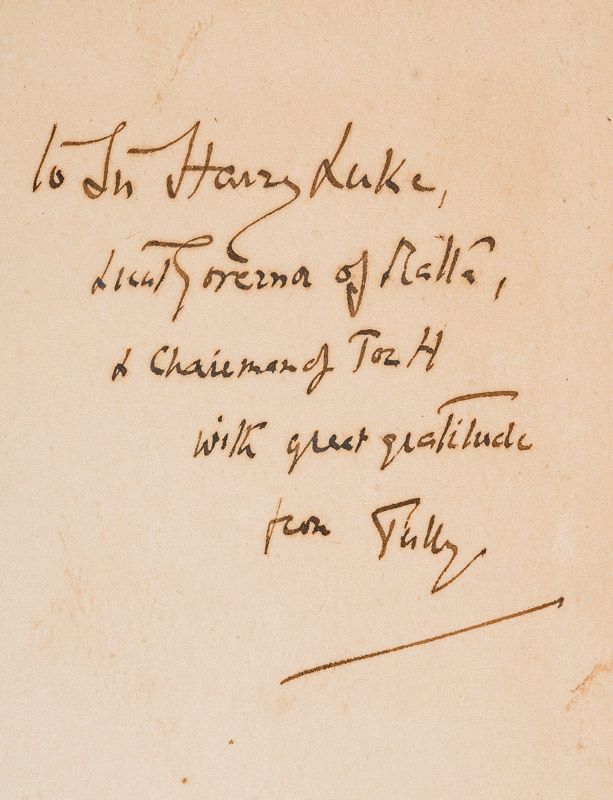 To Sir Harry Luke,
Lieut Governor of Malta,
& Chairman of Toc H
with great gratitude
from Tubby